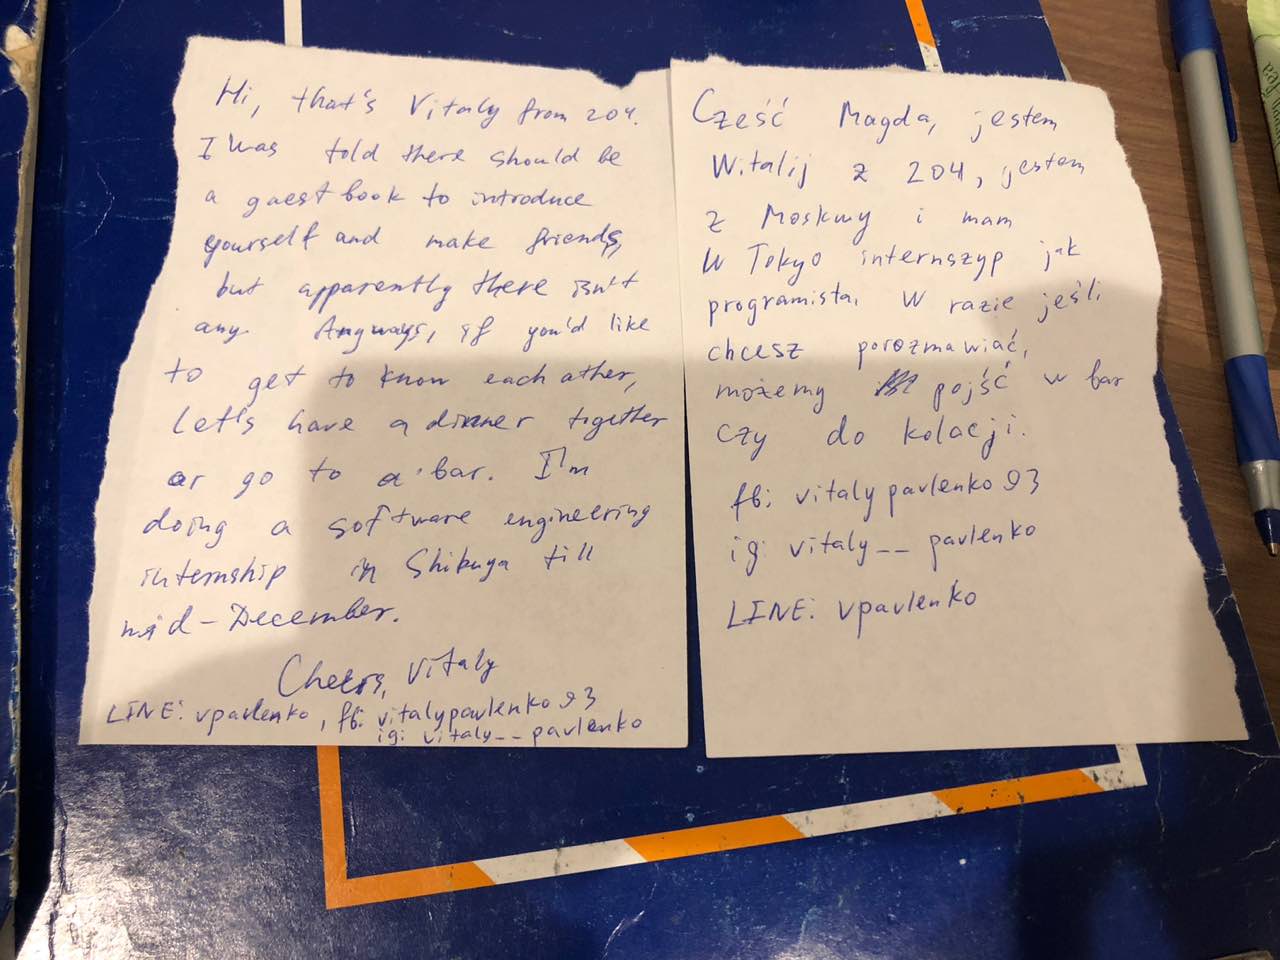 Hi, that's Vitaly from 204.
I was told there should be
a guest book to introduce
yourself and make friends,
but apparently there isn't
any. Anyways, if you'd like
to get to know each other,
Let's have a dinner together
or go to a bar. I'm
doing a software engineering
internship in Shibuya till
mid-December.
Cheers, Vitaly
LINE: vpavlenko, fb: vitalypavlenko93
ig: vitaly__pavlenko
Cześć Magda, jestem
Witalij z 204, jestem
z Moskwy i mam
w Tokyo internszyp jak
programista. W razie jeśli
chcesz porozmawiać,
możemy pojść w bar
czy do kolacji.
fb: vitalypavlenko93
ig: vitaly__pavlenko
LINE: vpavlenko